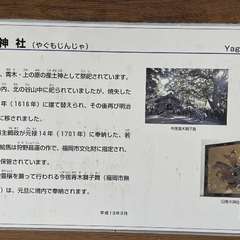 神 社 (やぐもじんじゃ) Yag
、青木・上の原の産土神として祭祀されています。
内、北の谷山中に祀られていましたが、焼失した
年(1618年)に建て替えられ、その後再び明治
に移されました。
主綱政が元禄14年(1701年)に奉納した、若
絵馬は狩野昌運の作で、福岡市文化財に指定され、
保管されています。
豊穣を願って行われる今宿青木獅子舞(福岡市無
)は、元旦に境内で奉納されます。
平成13年3月
今宿青木獅子舞